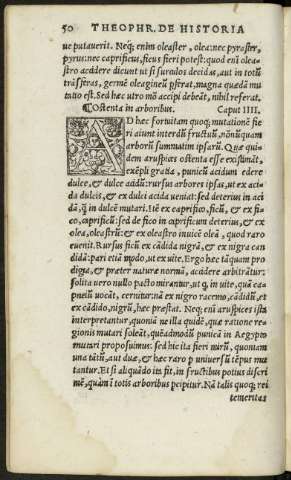 50 THEOPHR. DE HISTORIA
ue putauerit. Neq; enim oleaster, olea: nec pyraster,
pyrus: nec caprificus, ficus fieri potest: quod eni olea-
stro accidere dicunt ut si surculos decidas, aut in totũ
trãsferas, germẽ oleagineũ pferat, magna quædã mu
tatio est. Sed hæc utro mõ accipi debeãt, nihil referat.
¶Ostenta in arboribus. Caput IIII.
AD hæc fortuitam quoq; mutationẽ fie
ri aiunt interdũ fructuũ, nõnũquam
arborũ summatim ipsarũ. Quæ qui-
dem aruspices ostenta esse existimãt,
exẽpli gratia, punicũ acidum edere
dulce, & dulce acidũ: rursus arbores ipsas, ut ex aci-
da dulcis, & ex dulci acida veniat: sed deterius in aci
dã, q̃ in dulcẽ mutari. Itẽ ex caprifico, ficũ, & ex fi-
co, caprificũ: sed de fico in caprificum deterius, & ex
olea, oleastrũ: & ex oleastro inuicẽ oleã, quod raro
euenit. Rursus ficũ ex cãdida nigrã, & ex nigra can
didã: pari etiã modo, ut ex uite. Ergo hæc tãquam pro
digia, & præter naturæ normã, accidere arbitrãtur:
solita uero nullo pacto mirantur, ut q, in uite, quã ca-
pneũ uocãt, cernitur: nã ex nigro racemo, cãdidũ, et
ex cãdido, nigrũ, hæc præstat. Neq; eni aruspices ista
interpretantur, quoniã ne illa quidẽ, quæ ratione re-
gionis mutari soleãt, quẽadmodũ punicã in Aegypto
mutari proposuimus: sed hic ita fieri mirũ, quoniam
una tãtũ, aut duæ, & hæc raro p uniuersũ tẽpus mu
tantur. Et si aliquãdo ita fit, in fructibus potius discri
mẽ, quàm totis arboribus pcipitur. Nã talis quoq; rei
temeritas